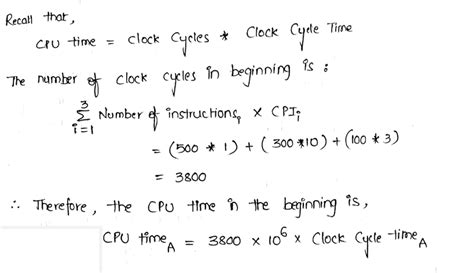 Recall that,
CPU time = Clock Cycles * Clock Cycle Time
The number of clock cycles in beginning is :
3
∑ Number of instructionsᵢ × CPIᵢ
i=1
= (500 * 1) + (300 * 10) + (100 * 3)
= 3800
∴ Therefore, the CPU time in the beginning is,
CPU time_A = 3800 × 10⁶ × Clock Cycle time_A